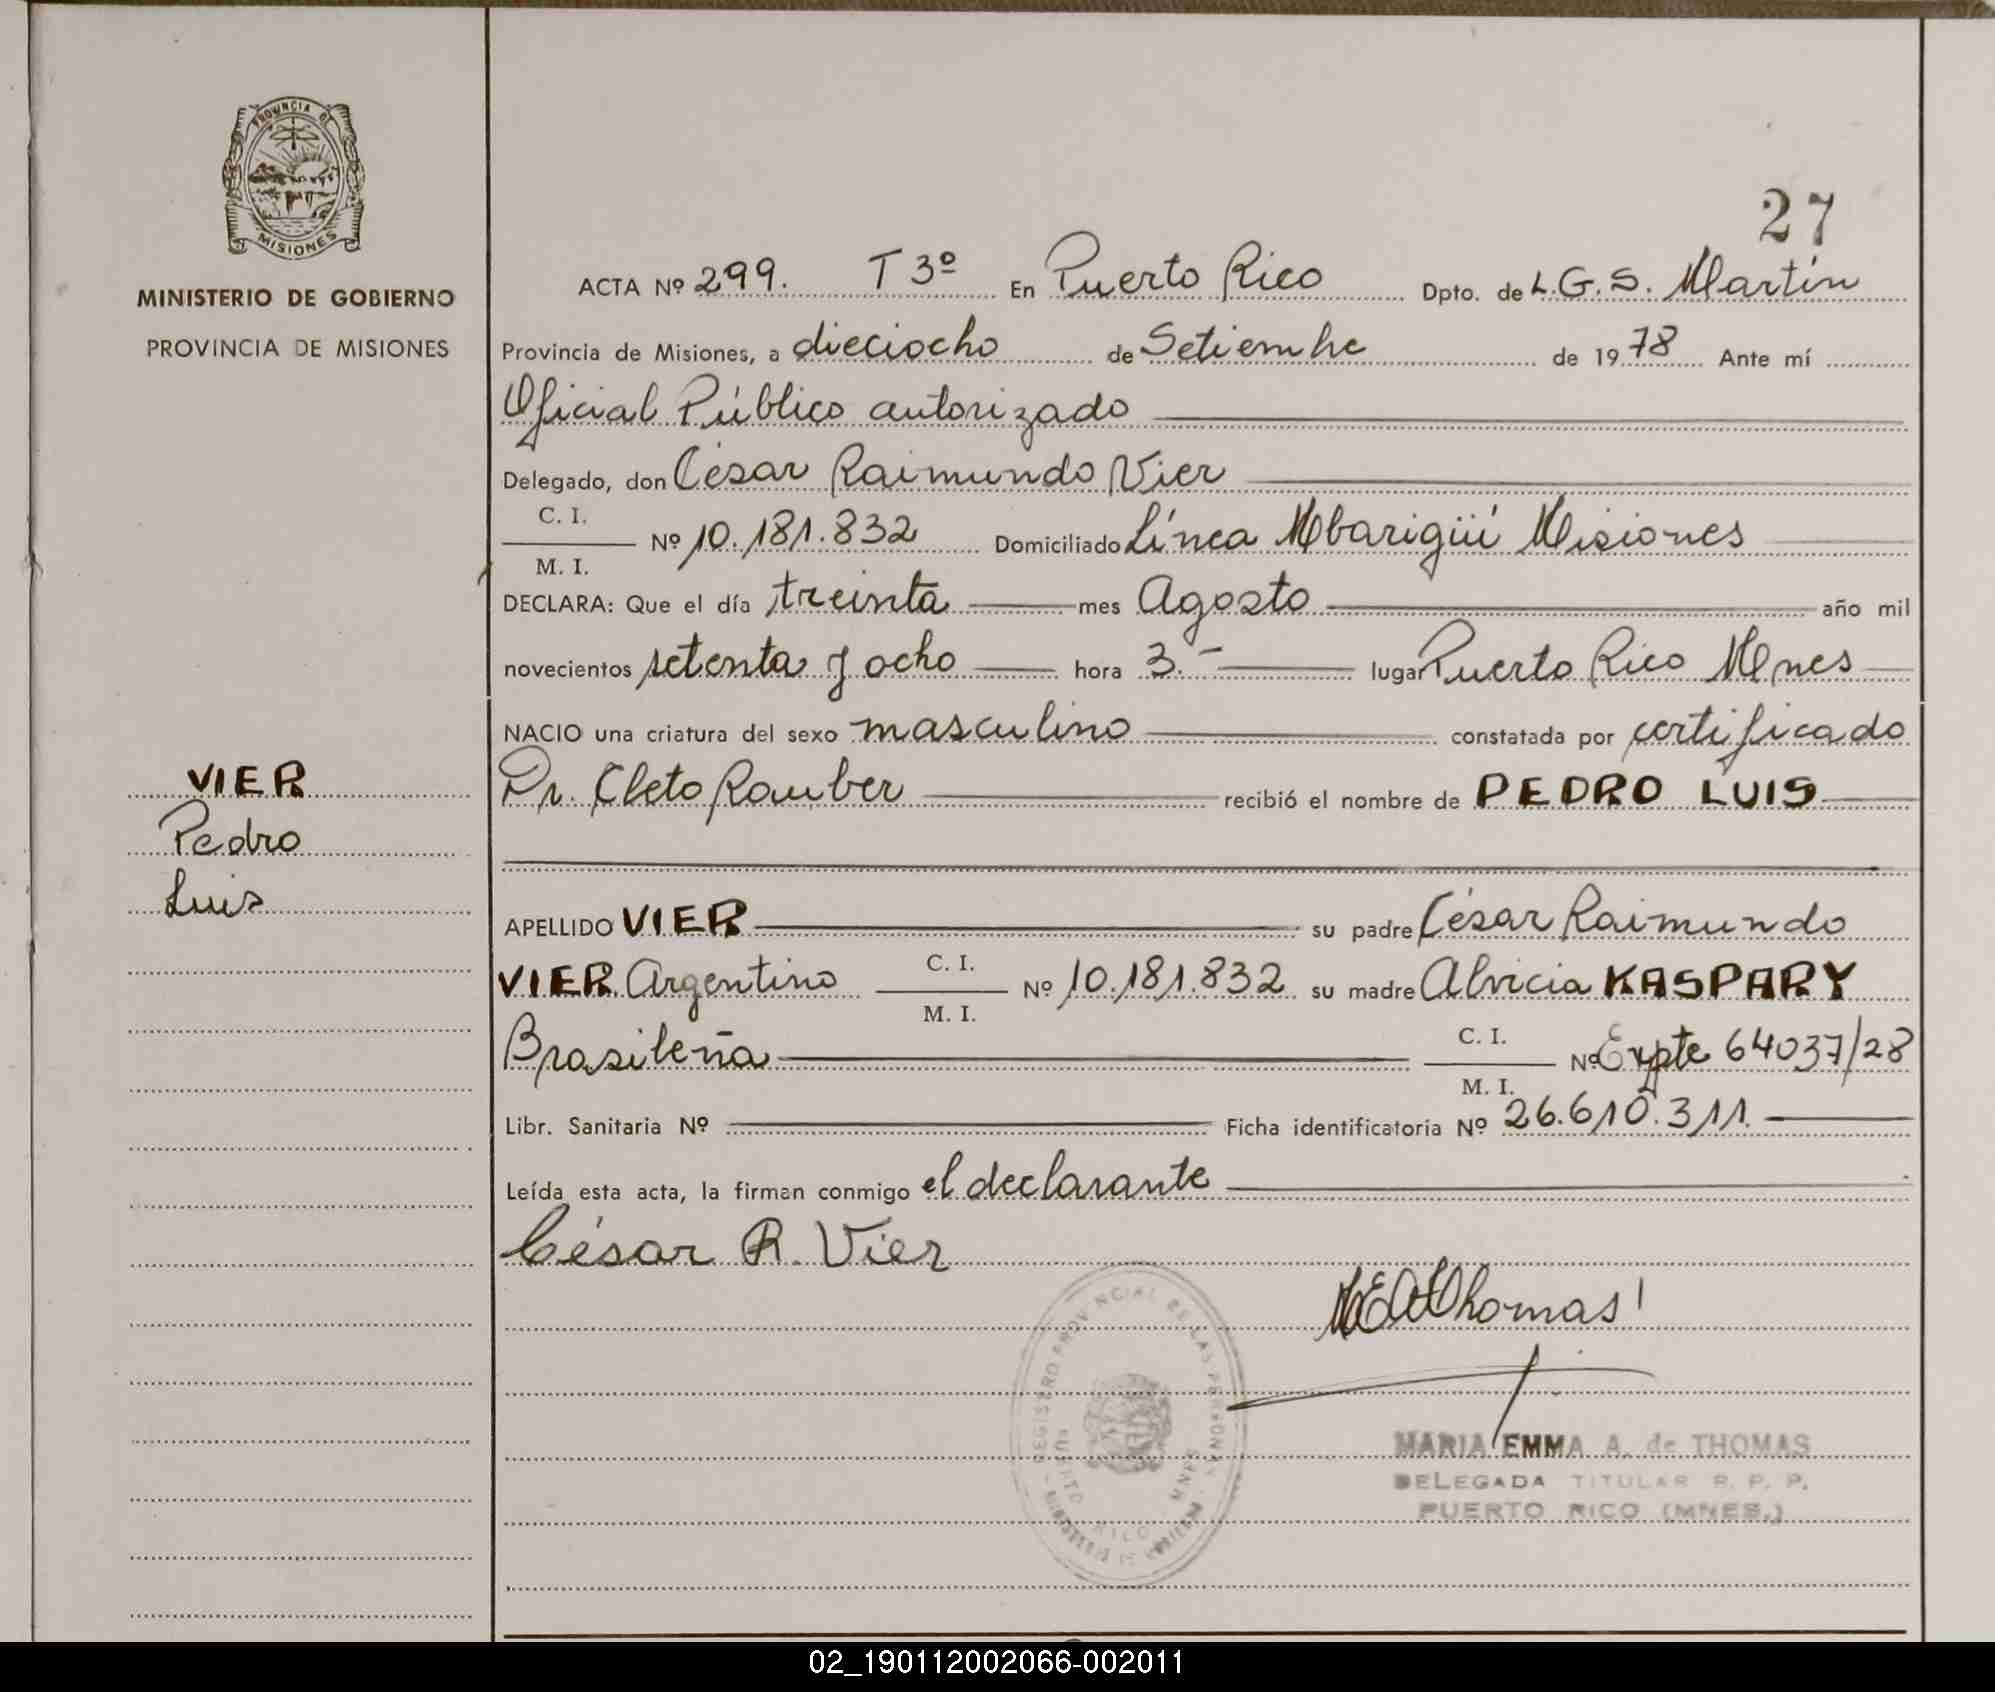 PROVINCIA DE
MISIONES
MINISTERIO DE GOBIERNO
PROVINCIA DE MISIONES
27
ACTA Nº 299. T 3º En Puerto Rico Dpto. de L.G.S. Martín
Provincia de Misiones, a dieciocho de Setiembre de 1978 Ante mí
Oficial Público autorizado
Delegado, don César Raimundo Vier
C. I.
M. I.
Nº 10.181.832 Domiciliado Línea Mbarigüí Misiones
DECLARA: Que el día treinta mes Agosto año mil
novecientos setenta y ocho hora 3.- lugar Puerto Rico Mnes
NACIO una criatura del sexo masculino constatada por certificado
Dr. Cleto Rauber recibió el nombre de PEDRO LUIS
VIER
Pedro
Luis
APELLIDO VIER su padre César Raimundo
VIER Argentino C. I. M. I. Nº 10.181.832 su madre Alvicia KASPARY
Brasileña C. I. M. I. Nº Expte 64037/28
Libr. Sanitaria Nº Ficha identificatoria Nº 26.610.311.
Leída esta acta, la firman conmigo el declarante
César R. Vier
MEAThomas
REGISTRO PROVINCIAL DE LAS PERSONAS
PUERTO RICO - MNES
MINISTERIO DE GOBIERNO
MARIA EMMA A. de THOMAS
DELEGADA TITULAR R. P. P.
PUERTO RICO (MNES.)
02_190112002066-002011